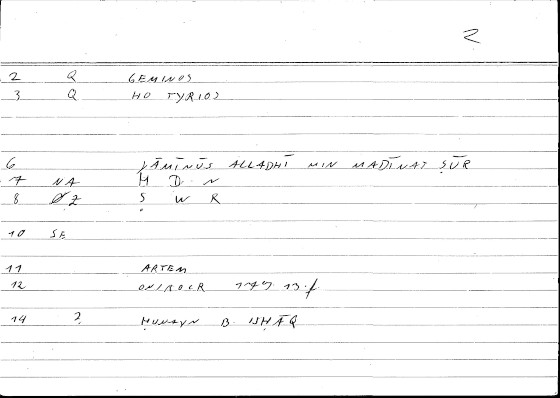 2
2 Q GEMINOS
3 Q HO TYRIOS
6 ǦĀMĪNŪS ALLADHĪ MIN MADĪNAT ṢŪR
7 NA M D N
8 Ø2 Ṣ W R
10 SE
11 ARTEM
12 ONIROCR 147 13
14 2 ḤUNAYN B ISḤĀQ